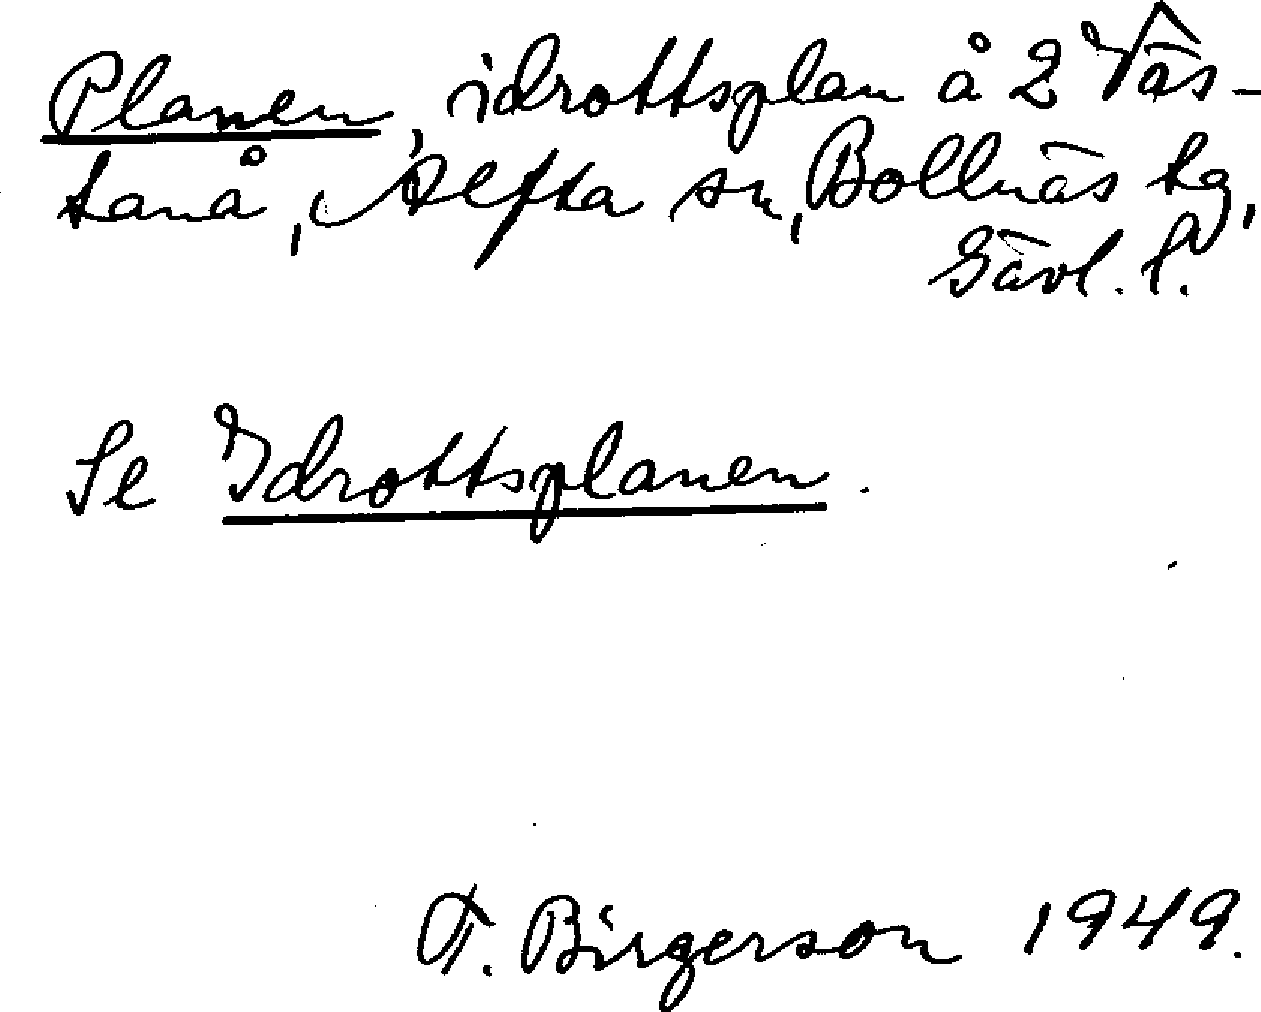 Planen, idrottsplan å 2 Väs-
tanå, Alfta sn, Bollnäs tg,
Gävl. l.
Se Idrottsplanen.
F. Birgerson 1949.